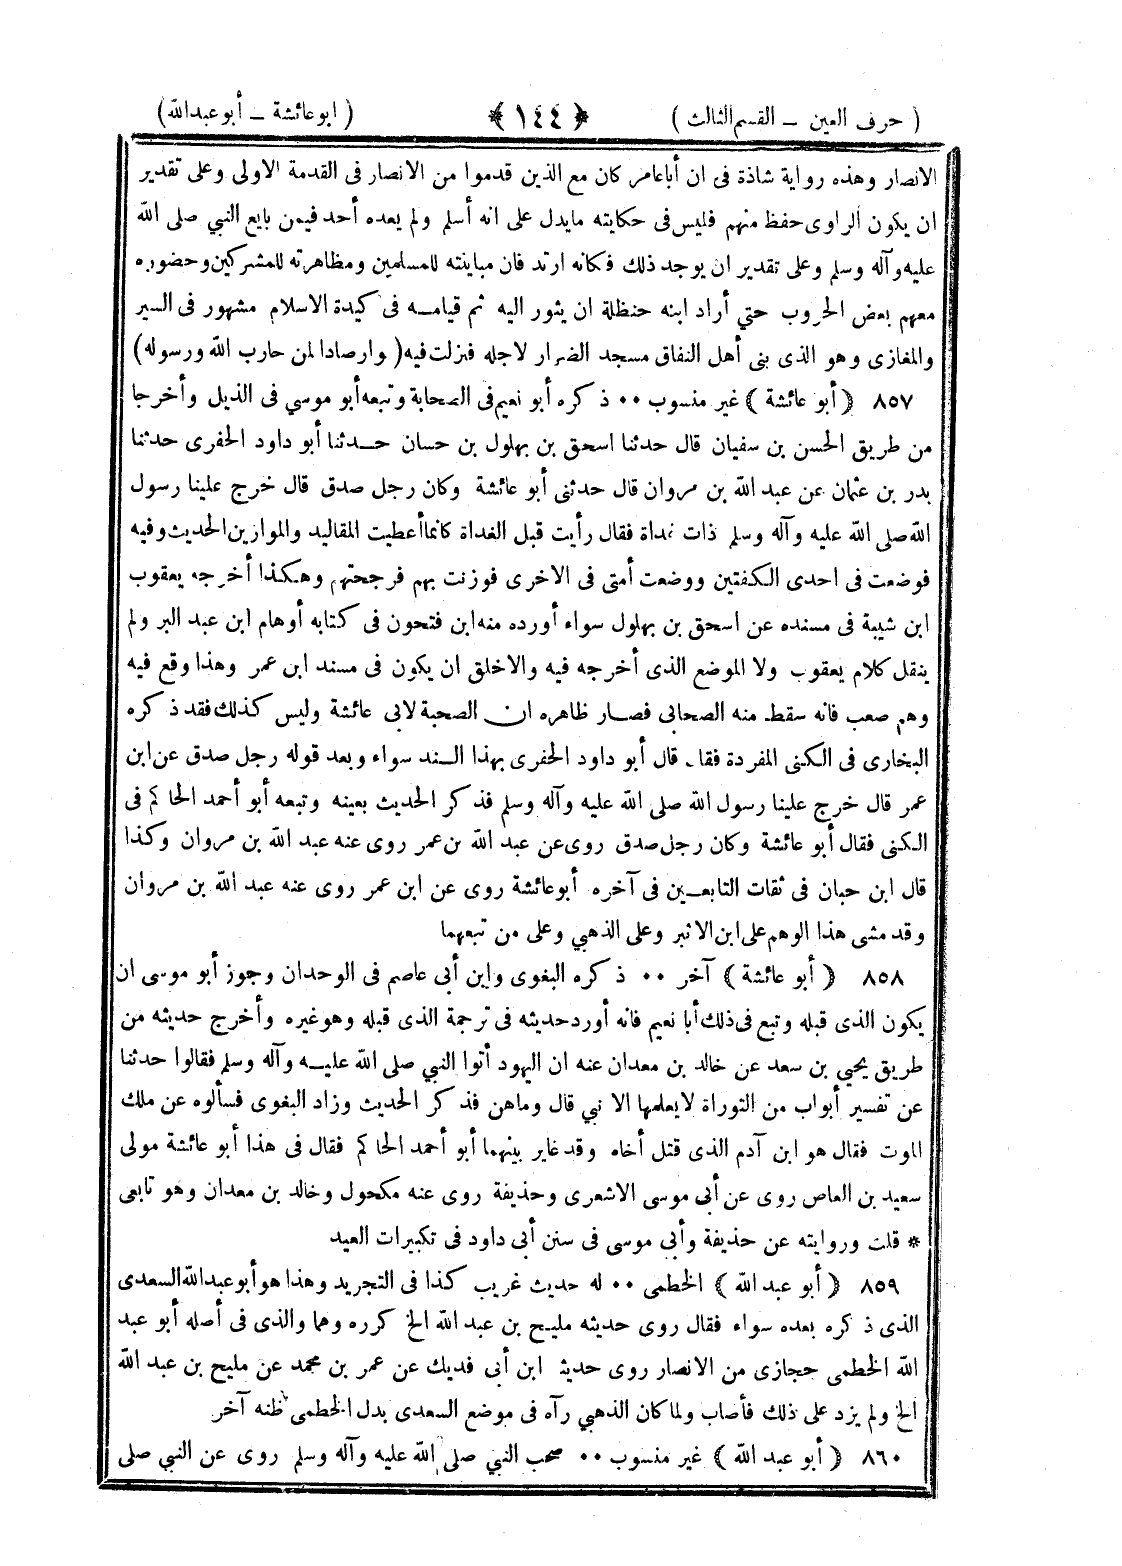 ( حرف العين ـ القسم الثالث ) ﴿ ١٤٤ ﴾ ( ابو عائشة ـ أبو عبدالله )
الانصار وهذه رواية شاذة فى ان أباعامر كان مع الذين قدموا من الانصار فى القدمة الاولى وعلى تقدير
ان يكون الراوى حفظ منهم فليس فى حكايته مايدل على انه أسلم ولم يعده أحد فيمن بايع النبي صلى الله
عليه وآله وسلم وعلى تقدير ان يوجد ذلك فكانه ارتد فان مباينته للمسلمين ومظاهرته للمشركين وحضوره
معهم بعض الحروب حتي أراد ابنه حنظلة ان يثور اليه ثم قيامه فى كيدة الاسلام مشهور فى السير
والمغازى وهو الذى بنى أهل النفاق مسجد الضرار لاجله فنزلت فيه ( وارصادا لمن حارب الله ورسوله )
٨٥٧ ﴿ أبو عائشة ﴾ غير منسوب ٠٠ ذكره أبو نعيم فى الصحابة وتبعه أبو موسي فى الذيل وأخرجا
من طريق الحسن بن سفيان قال حدثنا اسحق بن بهلول بن حسان حدثنا أبو داود الحفرى حدثنا
بدر بن عثمان عن عبد الله بن مروان قال حدثنى أبو عائشة وكان رجل صدق قال خرج علينا رسول
الله صلى الله عليه وآله وسلم ذات غداة فقال رأيت قبل الغداة كانما أعطيت المقاليد والموازين الحديث وفيه
فوضعت فى احدى الكفتين ووضعت أمتى فى الاخرى فوزنت بهم فرجحتهم وهكذا أخرجه يعقوب
ابن شيبة فى مسنده عن اسحق بن بهلول سواء أورده منه ابن فتحون فى كتابه أوهام ابن عبد البر ولم
ينقل كلام يعقوب ولا الموضع الذى أخرجه فيه والاخلق ان يكون فى مسند ابن عمر وهذا وقع فيه
وهم صعب فانه سقط منه الصحابى فصار ظاهره ان الصحبة لابى عائشة وليس كذلك فقد ذكره
البخارى فى الكنى المفردة فقال قال أبو داود الحفرى بهذا السند سواء وبعد قوله رجل صدق عن ابن
عمر قال خرج علينا رسول الله صلى الله عليه وآله وسلم فذكر الحديث بعينه وتبعه أبو أحمد الحاكم فى
الكنى فقال أبو عائشة وكان رجل صدق روى عن عبد الله بن عمر روى عنه عبد الله بن مروان وكذا
قال ابن حبان فى ثقات التابعين فى آخره أبو عائشة روى عن ابن عمر روى عنه عبد الله بن مروان
وقد مشى هذا الوهم على ابن الاثير وعلى الذهبي وعلى من تبعهما
٨٥٨ ﴿ أبو عائشة ﴾ آخر ٠٠ ذكره البغوى وابن أبى عاصم فى الوحدان وجوز أبو موسى ان
يكون الذى قبله وتبع فى ذلك أبا نعيم فانه أورد حديثه فى ترجمة الذى قبله وهو غيره وأخرج حديثه من
طريق يحيي بن سعد عن خالد بن معدان عنه ان اليهود أتوا النبي صلى الله عليه وآله وسلم فقالوا حدثنا
عن تفسير أبواب من التوراة لايعلمها الا نبي قال وماهن فذكر الحديث وزاد البغوى فسألوه عن ملك
الموت فقال هو ابن آدم الذى قتل أخاه وقد غاير بينهما أبو أحمد الحاكم فقال فى هذا أبو عائشة مولى
سعيد بن العاص روى عن أبى موسى الاشعرى وحذيفة روى عنه مكحول وخالد بن معدان وهو تابعى
* قلت وروايته عن حذيفة وأبى موسى فى سنن أبى داود فى تكبيرات العيد
٨٥٩ ﴿ أبو عبد الله ﴾ الخطمى ٠٠ له حديث غريب كذا فى التجريد وهذا هو أبو عبد الله السعدى
الذى ذكره بعده سواء فقال روى حديثه مليح بن عبد الله الخ كرره وهما والذى فى أصله أبو عبد
الله الخطمى حجازى من الانصار روى حديثه ابن أبى فديك عن عمر بن محمد عن مليح بن عبد الله
الخ ولم يزد على ذلك فأصاب ولما كان الذهبي رآه فى موضع السعدى بدل الخطمى ظنه آخر
٨٦٠ ﴿ أبو عبد الله ﴾ غير منسوب ٠٠ صحب النبي صلى الله عليه وآله وسلم روى عن النبي صلى